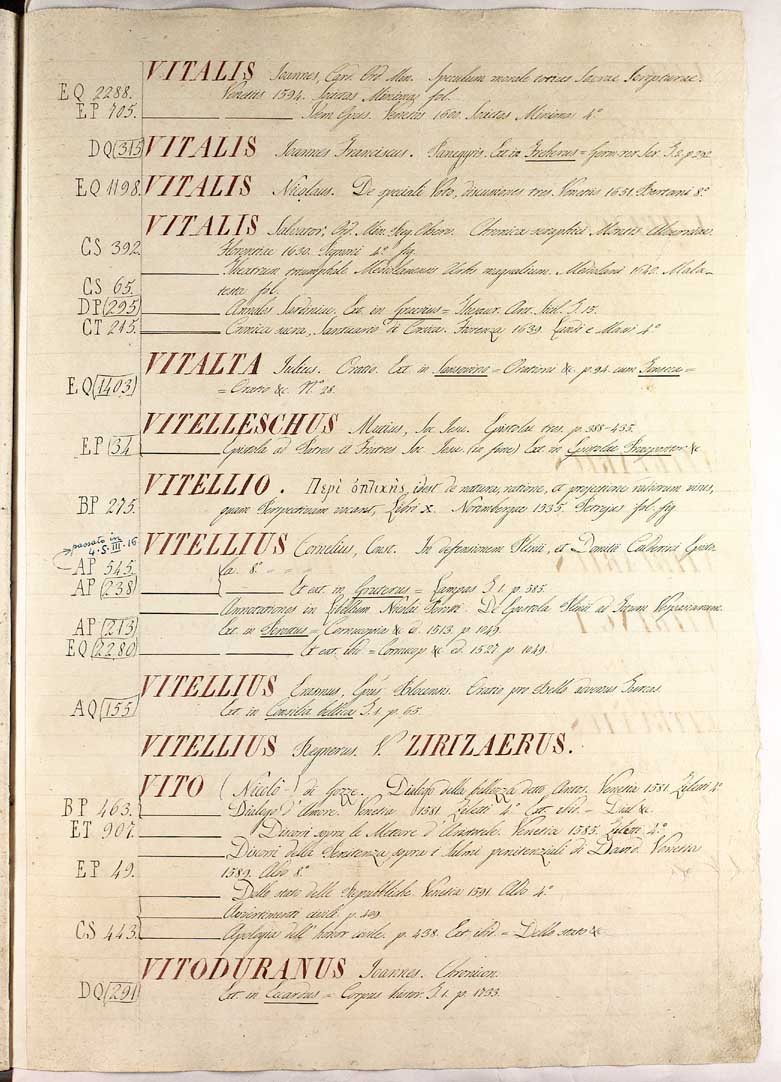 VITALIS Joannes, Card. Ord. Min. Speculum morale totius Sacrae Scripturae.
EQ 2288. Venetiis 1594. Societas Minima fol.
EP 705. Idem Opus. Venetiis 1600. Societas Minima 4°
DQ (315 VITALIS Joannes Franciscus. Panegyris. Ext. in Freherus = Germ. rer. Scr. T. 2. p.
EQ 1198. VITALIS Nicolaus. De speciali Voto, discussiones tres. Venetiis 1651. Bertani 8°
VITALIS Salvator, Ord. Min. Chronica Montis Alverniae.
CS 392. Florentiae 1630. 4° fig.
Theatrum triumphale Mediolanensis Urbis magnalium. Mediolani 1640. Mala-
CS 65. testa fol.
DP (295) Annales Sardiniae. Ext. in Graevius = Thesaur. Ant. Ital. T. 15.
CT 215. Cronica sacra, Santuario di Corsica. Fiorenza 1639. 4°
VITALTA Julius. Oratio. Ext. in Sansovino = Orationi &c. p. 94. cum
EQ (1403) = Oratio &c. N° 28.
VITELLESCHUS Mutius, Soc. Jesu. Epistolae tres. p. 388-435.
EP (34 Epistola ad Patres et Fratres Soc. Jesu (in fine) Ext. in Epistolae Praepositor. &c
VITELLIO. Περὶ ὀπτικῆς, idest de natura, ratione, et projectione radiorum visus,
BP 275. quam Perspectivam vocant, Libri X. Norimbergae 1535. Petrejus fol. fig
passato in
4. S. III. 16
VITELLIUS Cornelius, Const. In defensionem Plinii, et Domitii Calderini Episto-
AP 545. la. 8°
AP (238) Et ext. in Gruterus = Lampas T. 1. p. 385.
Annotationes in Libellum Nicolai Perotti De Epistola Plinii ad Titum Vespasianum.
AP (213) Ext. in Perottus = Cornucopiae &c ed. 1513. p. 1049.
EQ (2280) Et ext. ibi = Cornucop &c ed. 1527. p. 1049.
VITELLIUS Erasmus, Epus Plocensis. Oratio pro Bello adversus Turcas.
AQ (155) Ext. in Consilia bellica T. 1. p. 65.
VITELLIUS Regnerus. V. ZIRIZAERUS.
VITO (Nicolò) di Gozze. Dialogo della bellezza detto Antos. Venetia 1581. Ziletti 4°
BP 463. Dialogo d'Amore. Venetia 1581. Ziletti 4° Ext. ibi = Dial &c.
ET 907. Discorsi sopra le Metheore d'Aristotele. Venetia 1585. Ziletti 4°
Discorsi della Penitenza, sopra i Salmi penitenziali di David. Venetia
EP 49. 1589. Aldo 8°
Dello stato delle Repubbliche. Venetia 1591. Aldo 4°
Avvertimenti civili. p. 409.
CS 443. Apologia dell'honor civile. p. 438. Ext. ibi = Dello stato &c
VITODURANUS Joannes. Chronicon.
DQ (291) Ext. in Eccardus = Corpus histor. T. 1. p. 1733.